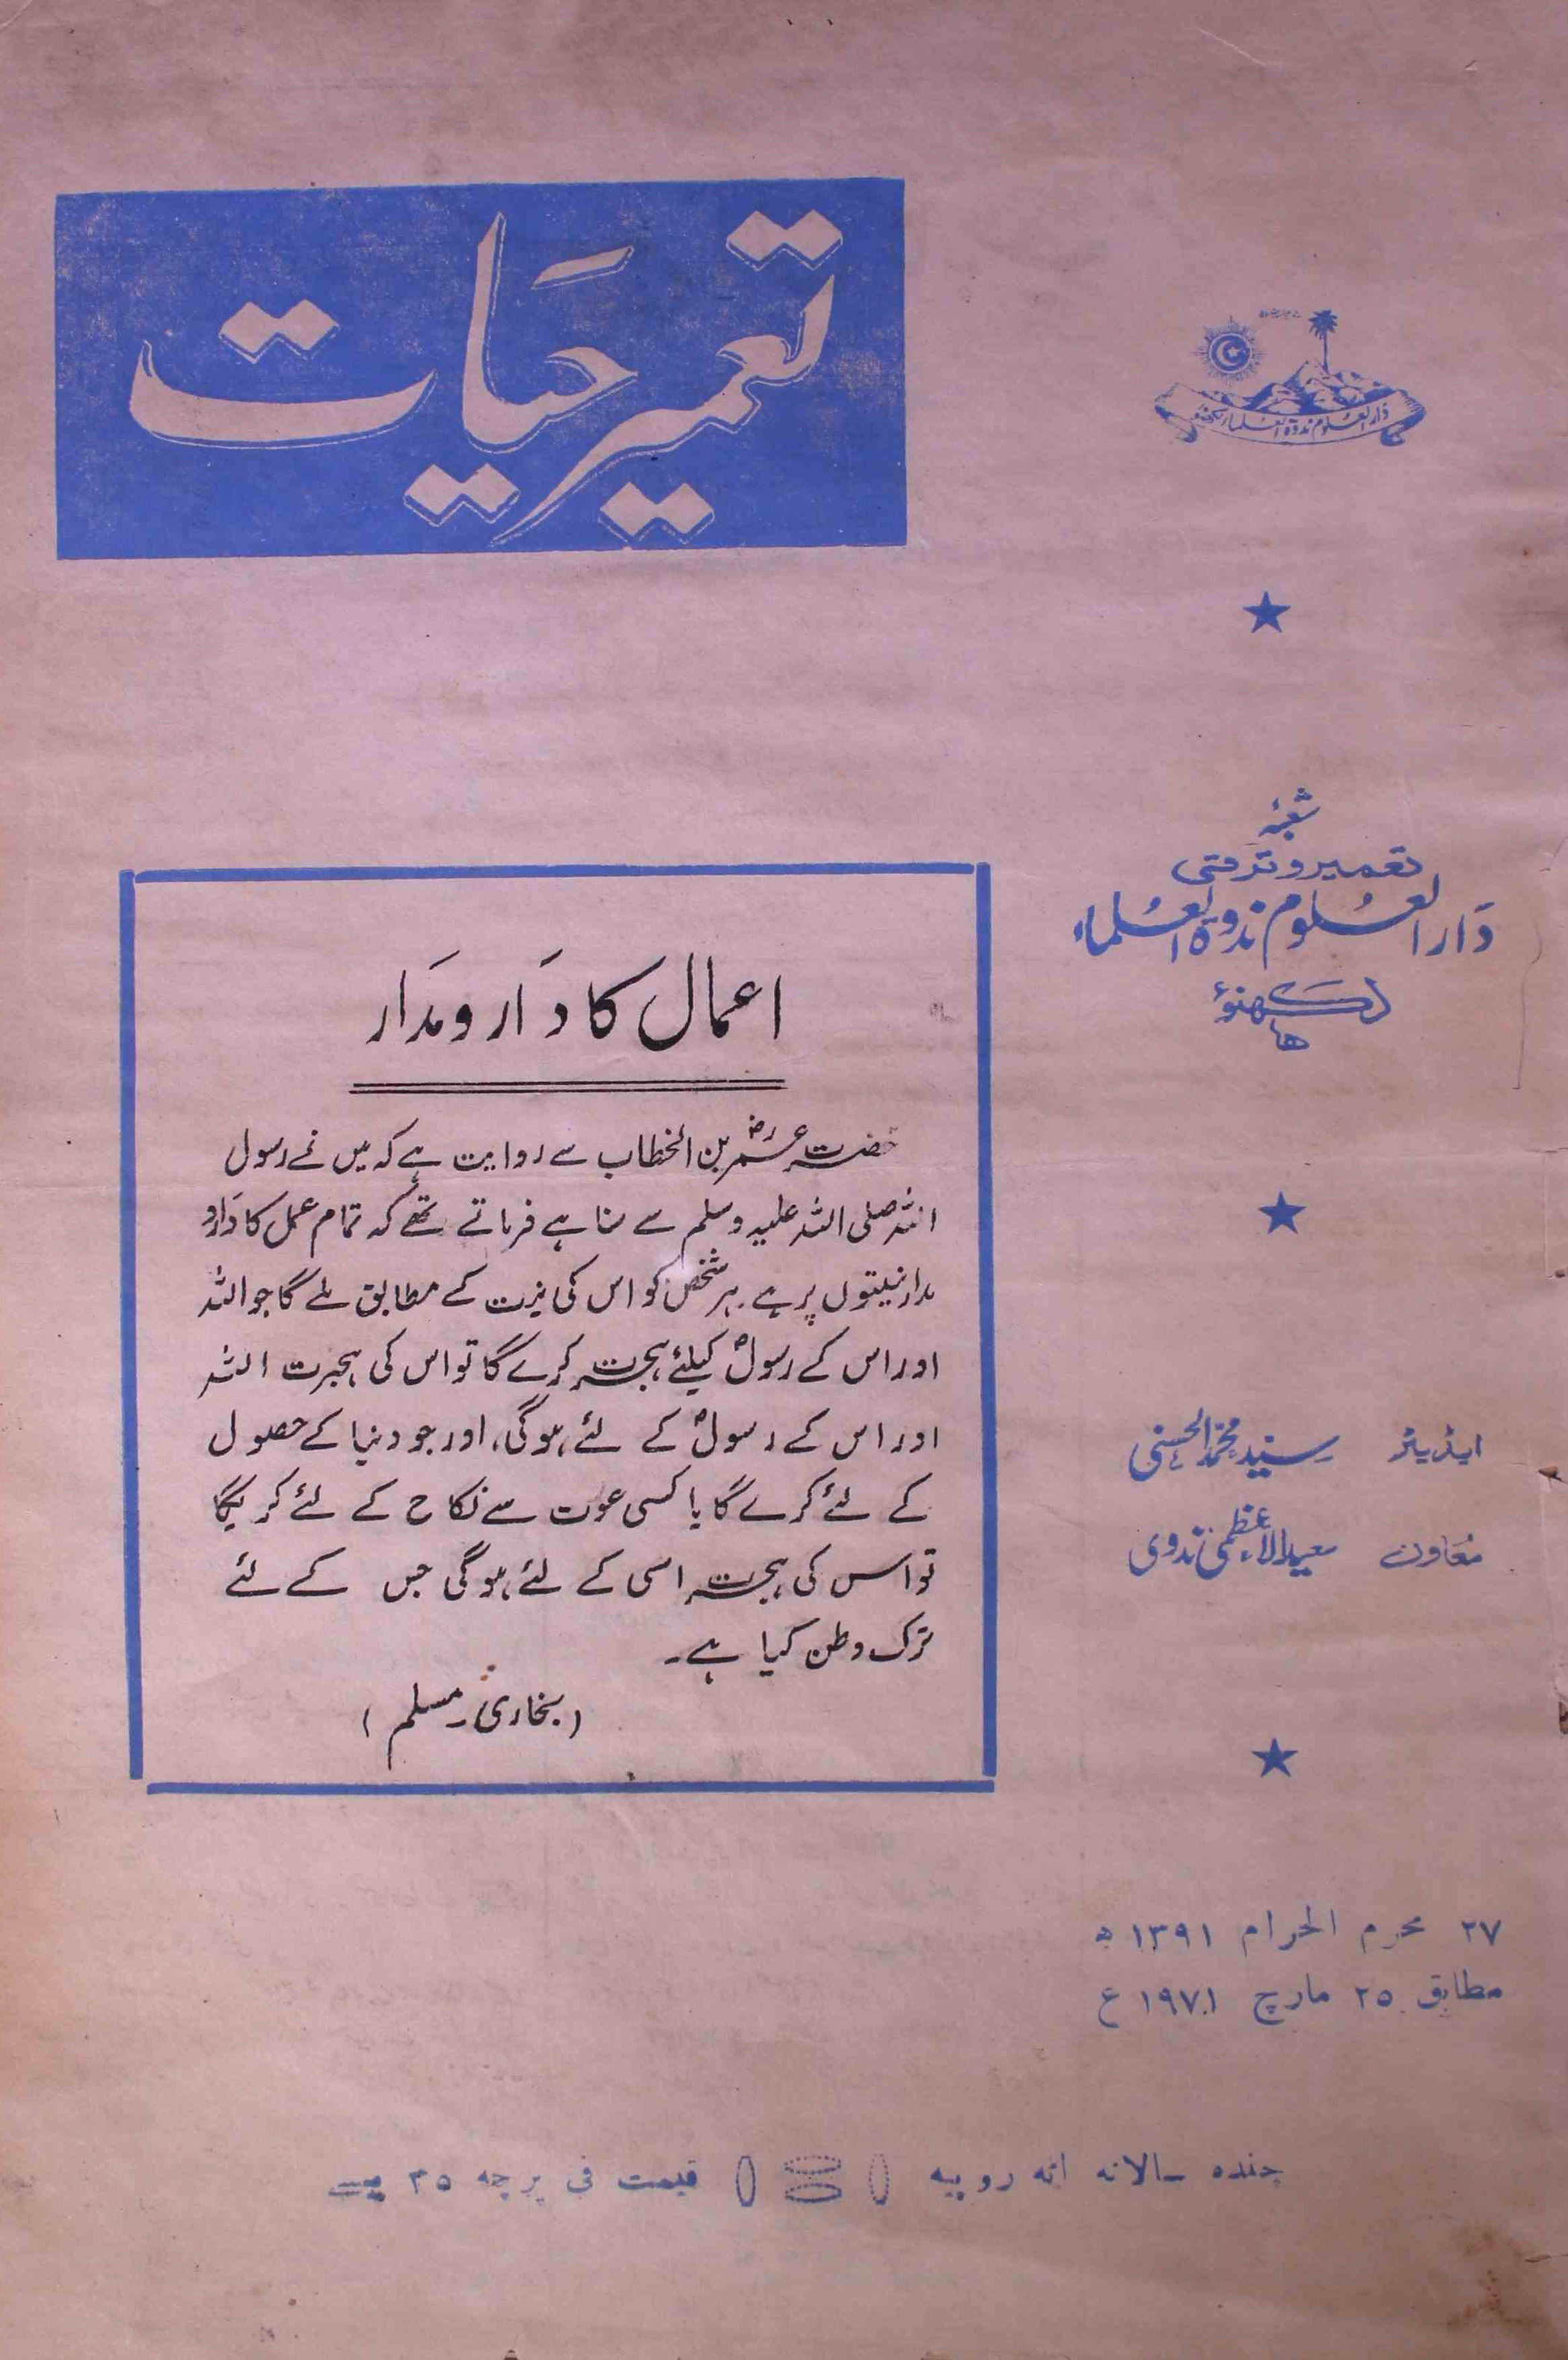 تعمیر حیات
دار العلوم ندوۃ العلماء لکھنؤ
شعبۂ
تعمیر و ترقی
دَار العُلوم ندوۃ العُلماء
لکھنؤ
ایڈیٹر سید محمد الحسنی
معَاون سعید الاعظمی ندوی
اعمال کا دَار و مدَار
حضرت عمرؓ بن الخطاب سے روایت ہے کہ میں نے رسول
اللہ صلی اللہ علیہ وسلم سے سنا ہے فرماتے تھے کہ تمام عمل کا دَارو
مدار نیتوں پر ہے۔ ہر شخص کو اس کی نیت کے مطابق ملے گا جو اللہ
اور اس کے رسولؐ کیلئے ہجرت کرے گا تو اس کی ہجرت اللہ
اور اس کے رسولؐ کے لئے ہوگی، اور جو دنیا کے حصول
کے لئے کرے گا یا کسی عوت سے نکاح کے لئے کریگا
تو اس کی ہجرت اسی کے لئے ہوگی جس کے لئے
ترک وطن کیا ہے۔
(بخاری۔ مسلم)
۲۷ محرم الحرام ۱۳۹۱ ھ
مطابق ۲۵ مارچ ۱۹۷۱ ع
چندہ سالانہ اٹھ روپیہ قیمت فی پرچہ ۳۵ پیسے